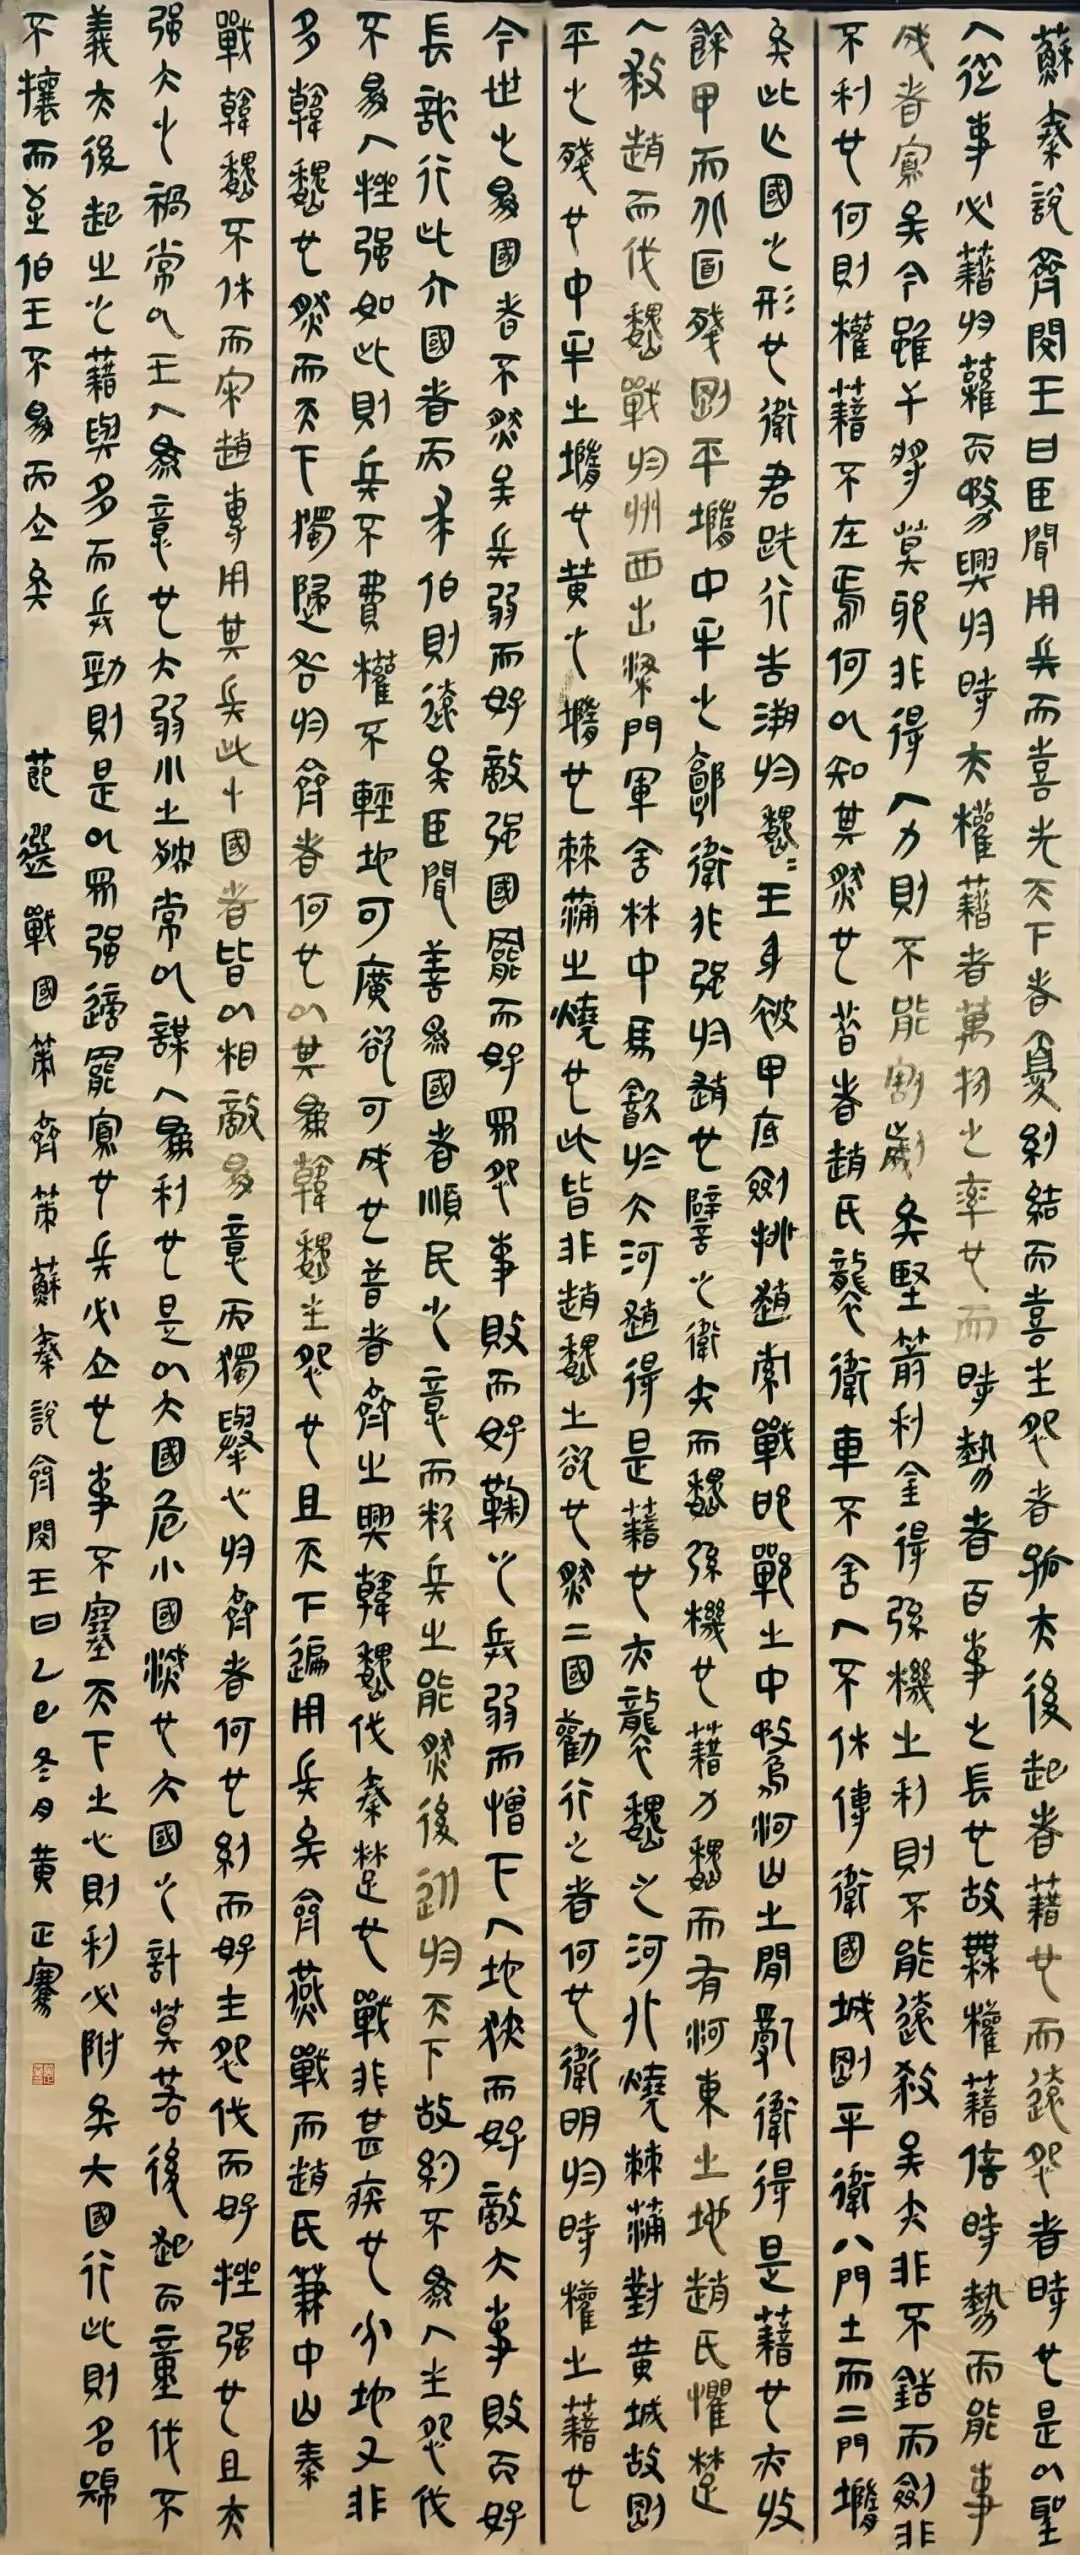 蘇秦說齊閔王曰臣聞用兵而喜先天下者憂約結而喜主怨者孤夫後起者藉也而遠怨者時也是以聖
人從事必藉於權而務興於時夫權藉者萬物之率也而時勢者百事之長也故無權藉倍時勢而能事
成者寡矣今雖干將莫邪非得人力則不能割劌矣堅箭利金得弦機之利則不能遠殺矣矢非不銛而劍非
不利也何則權藉不在焉何以知其然也昔者趙氏襲衛車不舍人不休傳衛國城剛平衛八門土而二門墮
矣此亡國之形也衛君跣行告溯於魏魏王身被甲底劍挑趙索戰邯鄲之中騖河山之間亂衛得是藉也亦收
餘甲而北面殘剛平墮中牟之郭衛非強於趙也譬之衛矢而魏弦機也藉力魏而有河東之地趙氏懼楚
人救趙而伐魏戰於州西出梁門軍舍林中馬飲於大河趙得是藉也亦襲魏之河北燒棘蒲對黃城故剛
平之殘也中牟之墮也黃之墮也棘蒲之燒也此皆非趙魏之欲也然二國勸行之者何也衛明於時權之藉也
今世之為國者不然矣兵弱而好敵強國罷而好眾怨事敗而好鞠之兵弱而憎下人地狹而好敵大事敗而好
長詐行此六國者而求伯則遠矣臣聞善為國者順民之意而料兵之能然後從於天下故約不為人主怨伐
不為人挫強如此則兵不費權不輕地可廣欲可成也昔者齊之與韓魏伐秦楚也戰非甚疾也分地又非
多韓魏也然而天下獨歸咎於齊者何也以其為韓魏主怨也且天下遍用兵矣齊燕戰而趙氏兼中山秦
戰韓魏不休而宋趙專用其兵此十國者皆以相敵為意而獨舉心於齊者何也約而好主怨伐而好挫強也且夫
強大之禍常以王人為意也夫弱小之殃常以謀人為利也是以大國危小國滅也大國之計莫若後起而重伐不
義夫後起之藉與多而兵勁則是以眾強適罷寡也兵必立也事不塞天下之心則利必附矣大國行此則名號
不攘而至伯王不為而立矣 節選戰國策齊策蘇秦說齊閔王曰乙巳冬月黃正騫